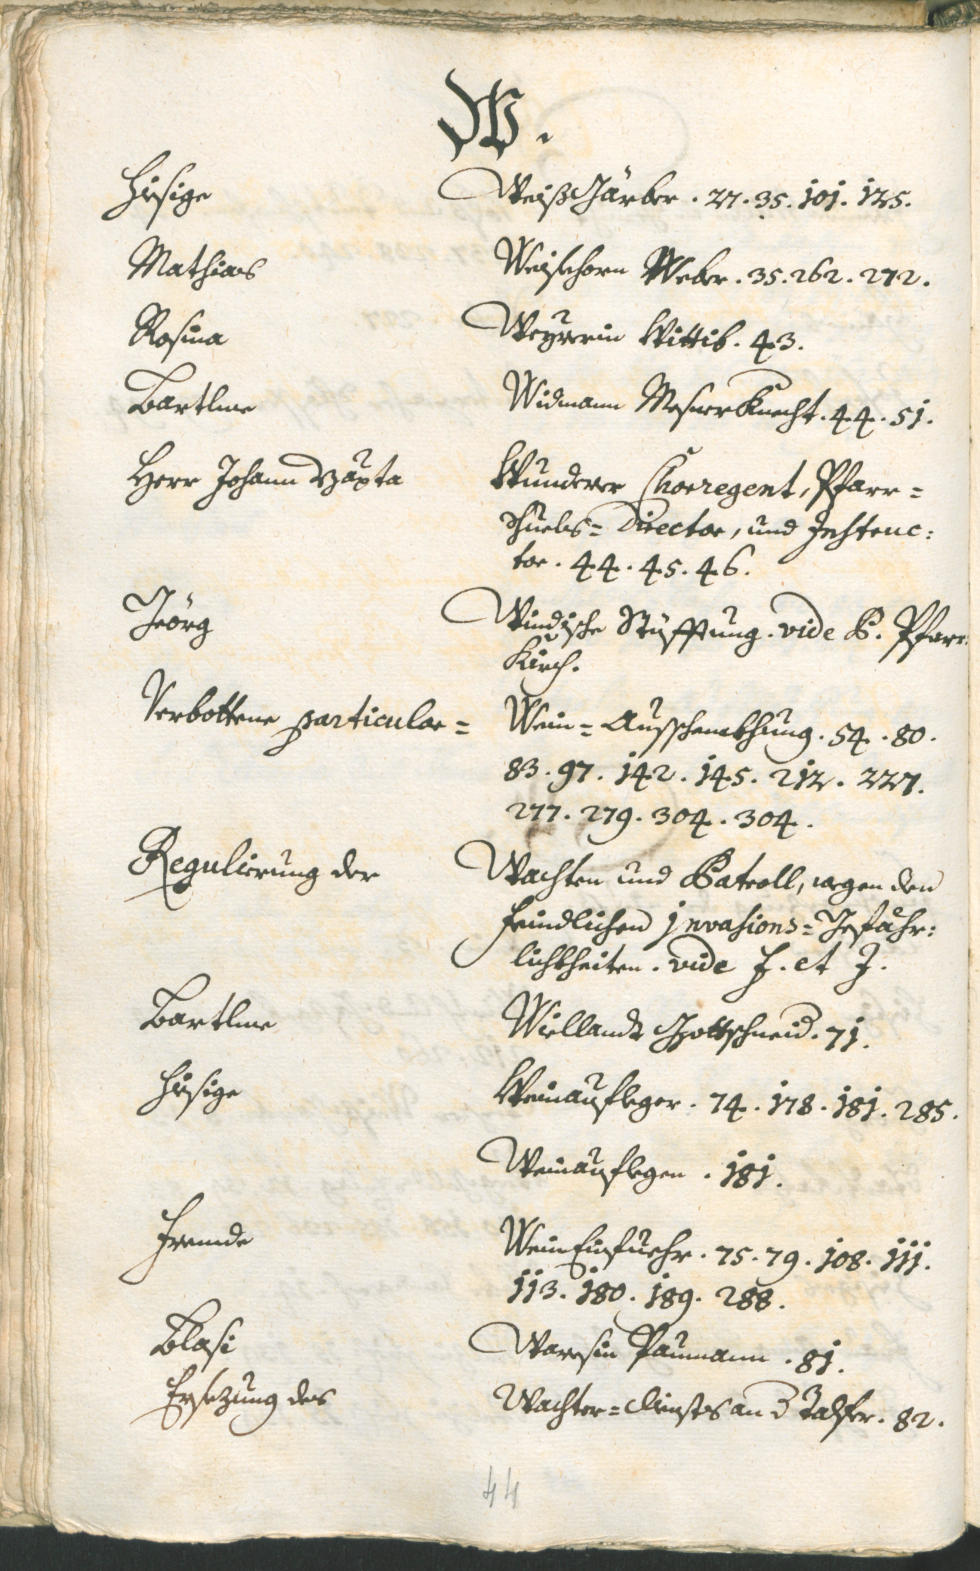 W.
Hiesige Weiß Gärber. 27. 35. 101. 125.
Mathias Weishorn Weber. 35. 262. 272.
Rosina Weyrerin Wittib. 43.
Bartlme Widmann Messner Knecht. 44. 51.
Herr Johann Bapta Wunderer Choeregent, Pfarr=
Schuels= Director, und Instruc:
tor. 44. 45. 46.
Geörg Windische Stüfftung. vide P. Pfarr:
Kirch.
Verbottene particular= Wein= Ausschenckhung. 54. 80.
83. 97. 142. 145. 212. 227.
277. 279. 304. 304.
Regulierung der Wachten und Patroll, wegen den
feindlichen invasions= Gefähr:
lichkheiten. vide F. et J.
Bartlme Wiellandt Gottschneid. 71.
Hiesige Weinaufleger. 74. 178. 181. 285.
Weinauflegen. 181.
Fremde Wein Einfuehr. 75. 79. 108. 111.
113. 180. 189. 288.
Blasi Paumann. 81.
Ersezung des Wachter= diensts an d Talfer. 82.
44